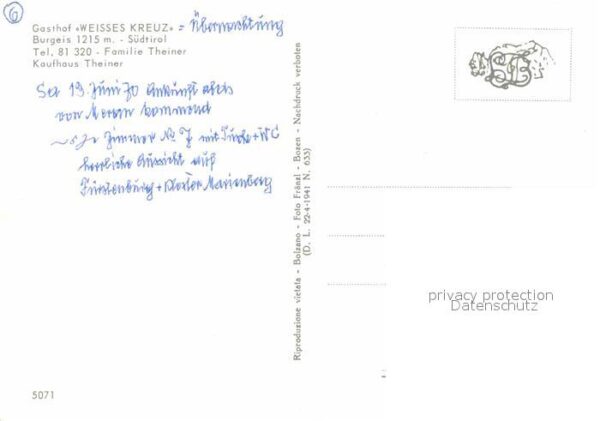 6
Gasthof «WEISSES KREUZ» = Übernachtung
Burgeis 1215 m. - Südtirol
Tel. 81 320 - Familie Theiner
Kaufhaus Theiner
19. Juni 70 Ankunft
von Meran kommend
Zimmer No 7 mit Dusche + WC
herrliche Aussicht auf
Fürstenburg + Kloster Marienberg
Riproduzione vietata - Bolzano - Foto Fränzl - Bozen - Nachdruck verboten
(D. L. 22-4-1941 N. 633)
privacy protection
Datenschutz
5071